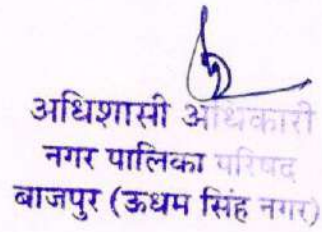 अधिशासी अधिकारी
नगर पालिका परिषद
बाजपुर (ऊधम सिंह नगर)